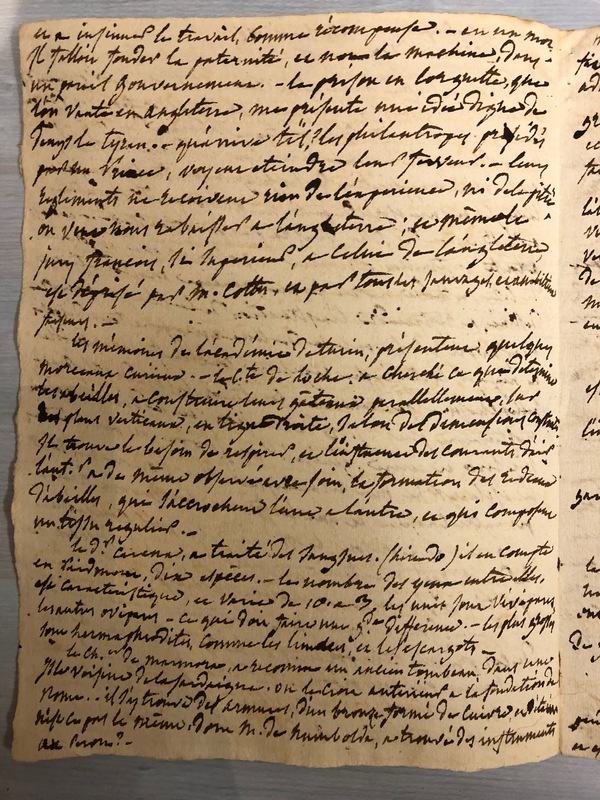 et a infiniser le travail, comme récompense. - en un mot
Il falloit fonder la paternité, et non la machine, dans
un pareil gouvernement. - la prison en coquille, que
l'on vante en angleterre, me présente une idée digne de
Denys le tyran. - qu'arrive t'il? les philantropes
par un Prince, voyent eteindre leur ferveur. - leurs
reglements ne recoivent rien de l'experience, ni de la pitié
on veut nous rabaisser a l'angleterre; et même le
jury françois, si superieur, a celui de l'angleterre
est deprisé par m. Cottu, et par tous les
-
les mémoires de l'académie de turin, présentent quelques
morceaux curieux. - le C.te de loche a cherché ce qui determine
les abeilles, a construire leurs gateaux parallellement, sur
des plans verticaux, en ligne droite, selon des dimensions
Il trouve le besoin de respirer, et l'influence des courants d'air
l'aut.r a de même observé avec soin, la formation des rideaux
d'abeilles, qui s'accrochent l'une a l'autre, et qui composent
un tissu regulier. -
le d.r Carena, a traité des sangsues. (hirudo) il en compte
en Piedmont, dix espèces. - le nombre des yeux entre elles,
est caracteristique, et varie de 10. a 2. les unes sont vivipares
les autres ovipares - ce qui doit faire une g.de difference. - les plus
sont hermaphrodites, comme les limaces, et les escargots. -
le Ch.er de marmora, a reconnu un ancien tombeau, dans une
Isle voisine de la sardaigne. on le croit anterieur a la fondation de
Rome. - il s'y trouve des armures, d'un bronze formé de cuivre et d'étain
n'est ce pas le même, dont M. de humboldt, a trouvé des instruments
au Perou? -